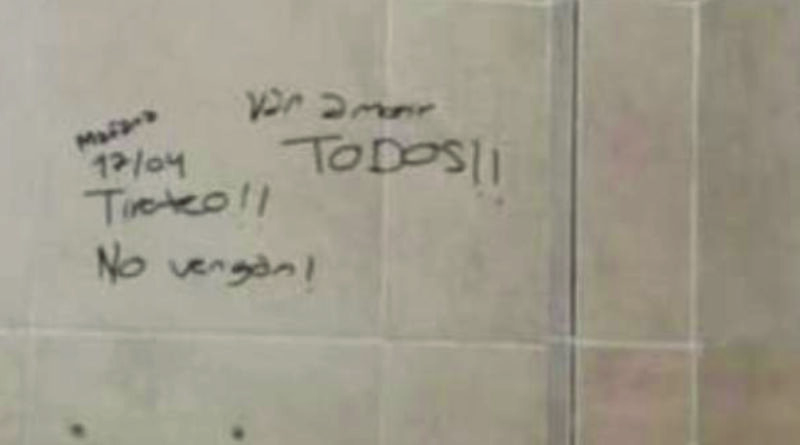 Mañana
17/04
Tiroteo!!
No vengan!
Van a morir
TODOS!!